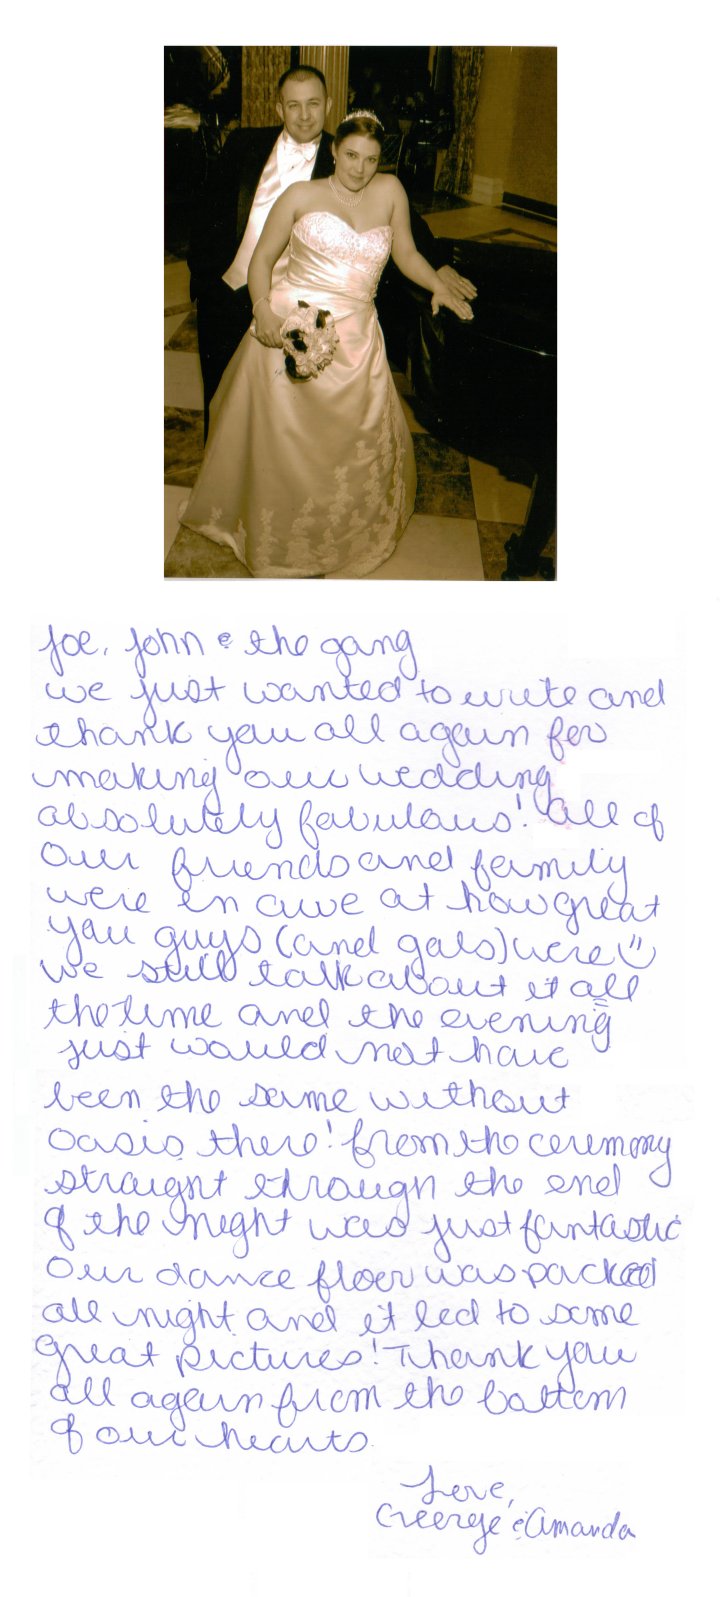 Joe, John & the gang
we just wanted to write and
thank you all again for
making our wedding
absolutely fabulous! All of
our friends and family
were in awe at how great
you guys (and gals) were
we still talk about it all
the time and the evening
just would not have
been the same without
Oasis there! From the ceremony
straight through the end
of the night was just fantastic
Our dance floor was packed
all night and it led to some
great pictures! Thank you
all again from the bottom
of our hearts
Love,
George & Amanda